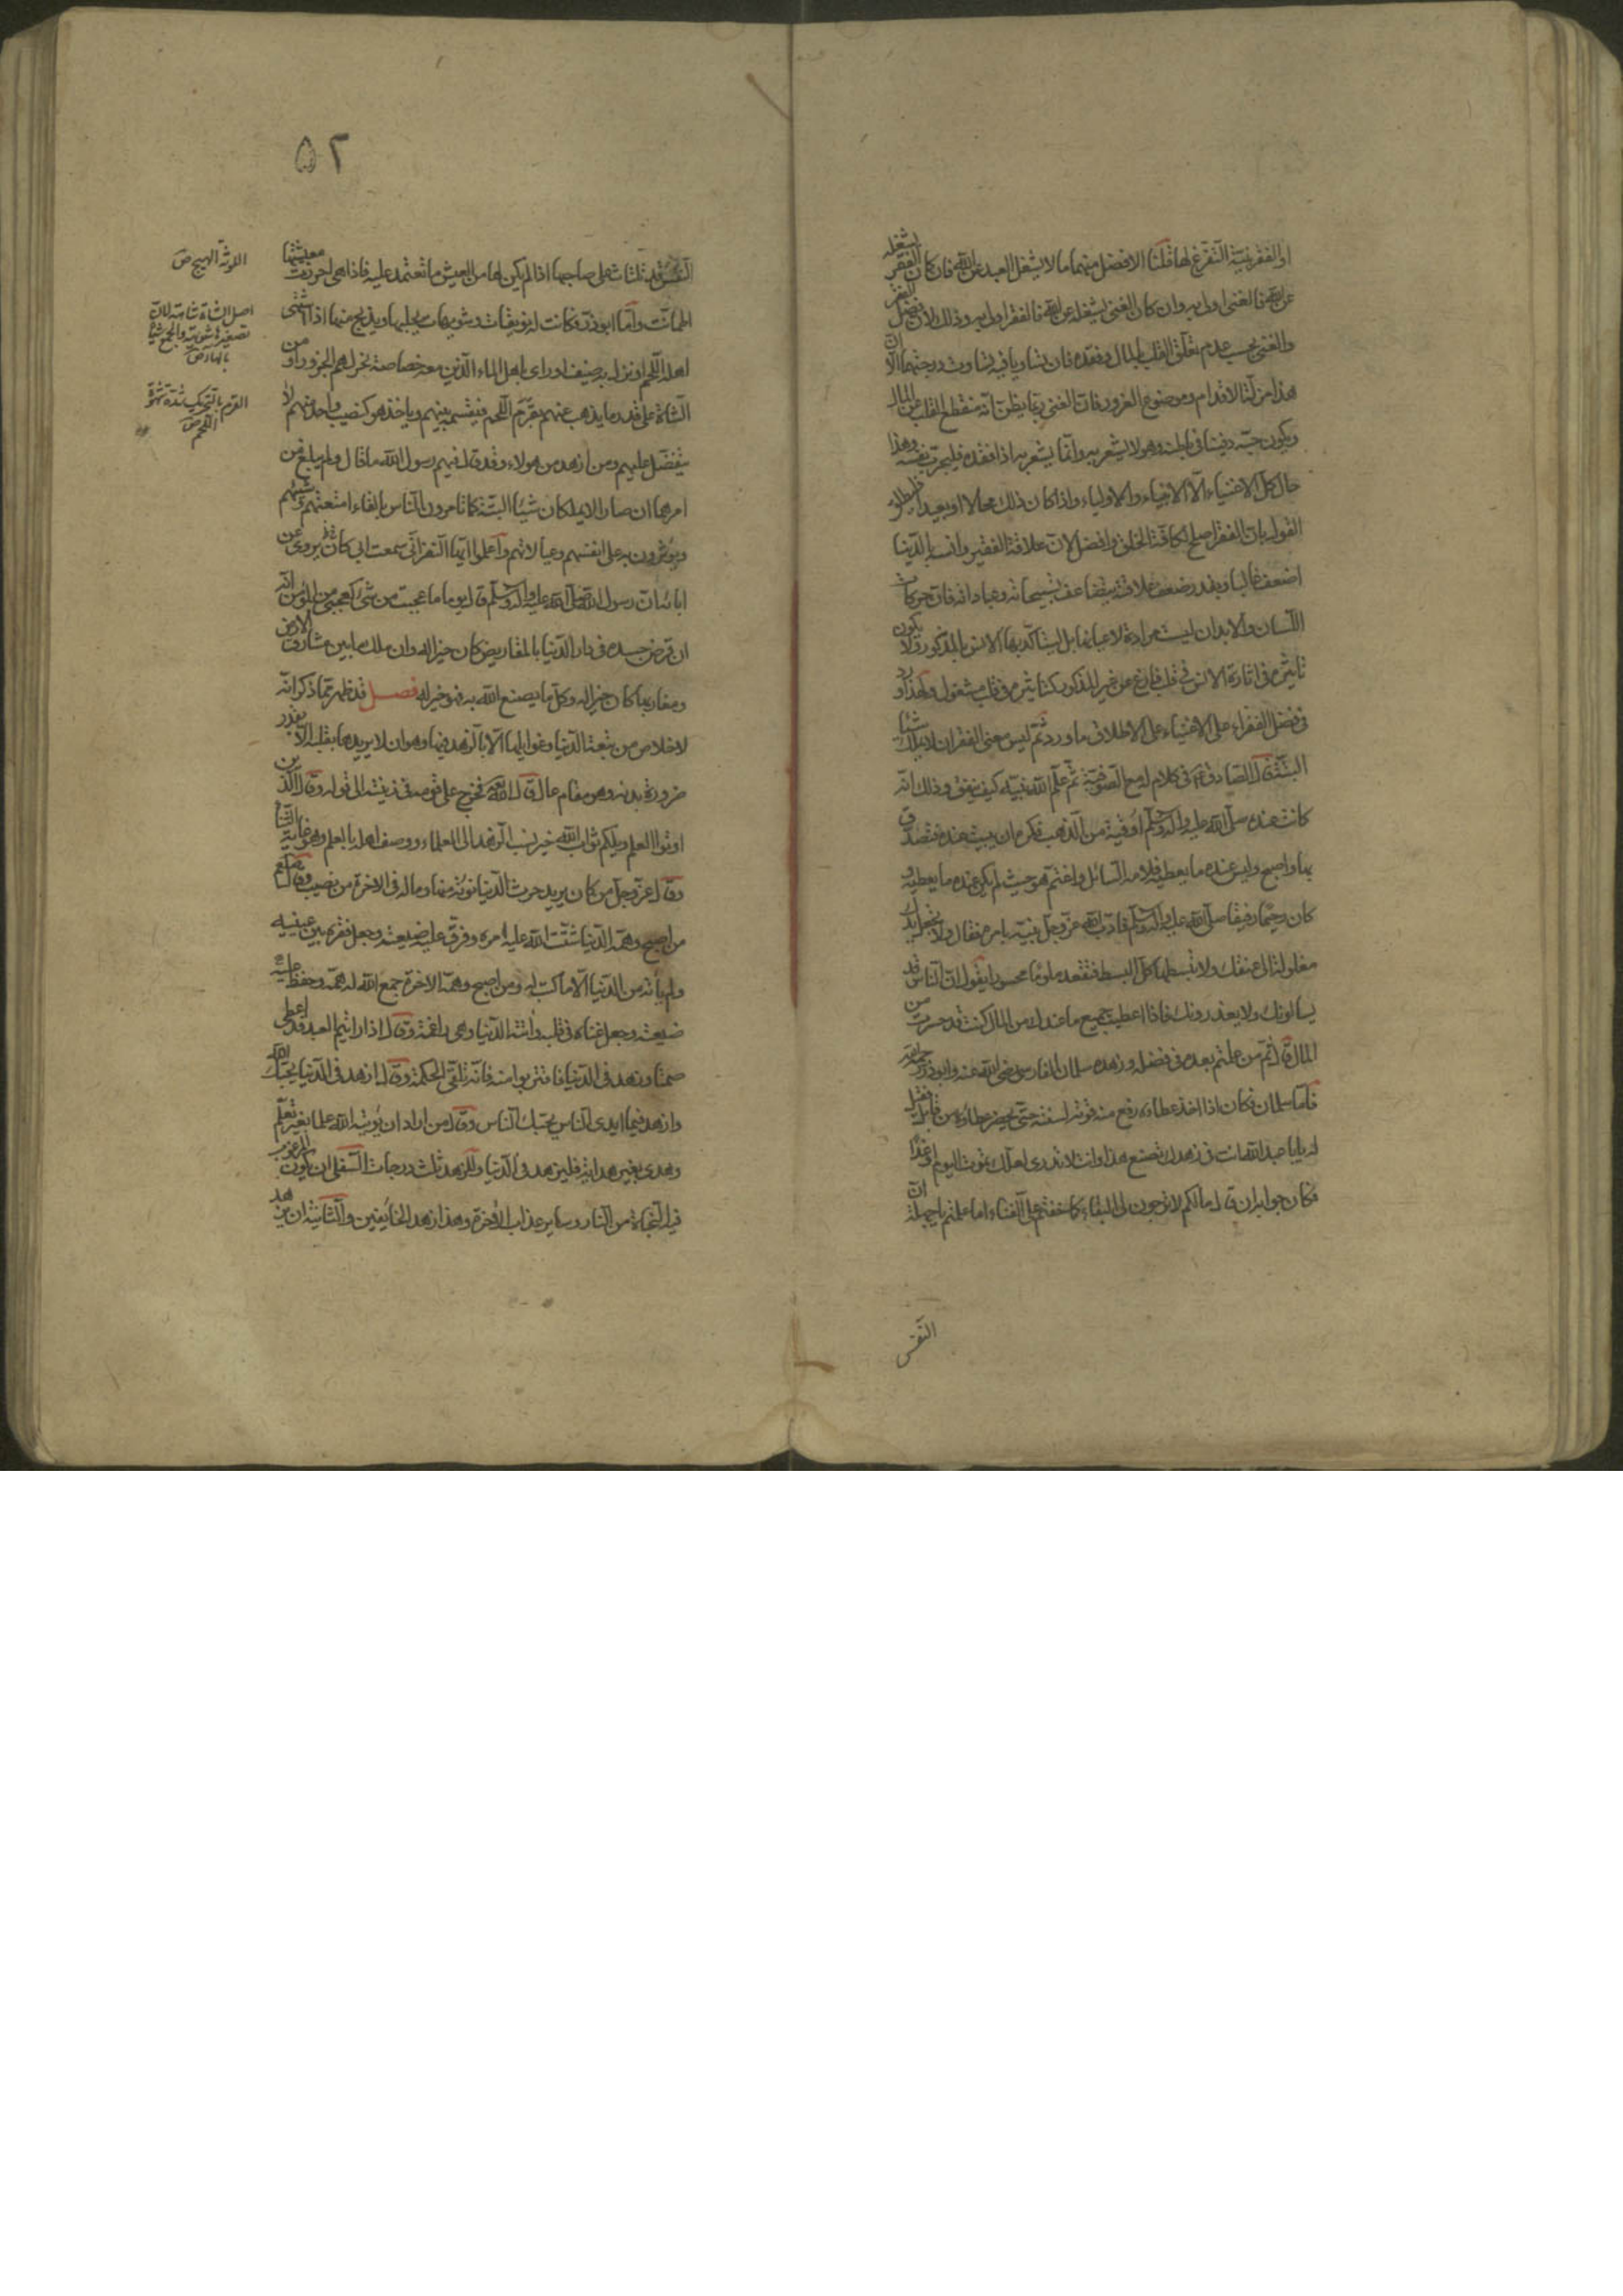 او الفقر بنيّة التفرّغ لها قلنا الافضل منهما ما لا يشغل العبد عن الله فان كان الفقر يشغله
عن الله فالغنى اولى به وان كان الغنى يشغله عن الله فالفقر اولى به وذلك لان فضل الفقر
والغنى بحسب عدم تعلّق القلب بالمال وفقده فان تساويا فيه تساوت درجتهما الّا انّ
هذا مزلّة الاقدام وموضوع الغرور فانّ الغنى ربّما يظنّ انّه منقطع القلب عن المال
ويكون حبّه دفينا فى باطنه وهو لا يشعر به وانّما يشعر به اذا فقده فليجرّب نفسه وهذا
حال كلّ الاغنياء الّا الانبياء والاولياء واذا كان ذلك محالا او بعيدا فليطلق
القول بانّ الفقر اصلح لكافّة الخلق وافضل لانّ علاقة الفقير وانسه بالدّنيا
اضعف غالبا وبقدر ضعف علاقته يتضاعف تسبيحاته وعباداته فانّ حركات
اللّسان والابدان ليست مرادة لاعيانها بل ليتأكّد بها الانس بالمذكور ولا يكون
تاثيرها فى اثارة الانس فى قلب فارغ عن غير المذكور كتاثيرها فى قلب مشغول ولهذا ورد
فى فضل الفقراء على الاغنياء على الاطلاق ما ورد ثم ليس معنى الفقر ان لا يملك شيئا
البتّة قال الصّادق ع فى كلام له مع الصّوفيّة ثم علّم الله نبيّه كيف ينفق وذلك انّه
كانت عنده صلّى الله عليه وآله وسلّم اوقية من الذّهب فكره ان يبيت عنده فتصدّق
بها واصبح وليس عنده ما يعطيه فلامه السّائل واغتمّ هو حيث لم يكن عنده ما يعطيه و
كان رحيما رفيقا صلّى الله عليه وآله وسلّم فادّب الله عزّ وجلّ نبيّه بامره فقال ولا تجعل يدك
مغلولة الى عنقك ولا تبسطها كلّ البسط فتقعد ملوما محسورا يقول انّ النّاس قد
يسالونك ولا يعذرونك فاذا اعطيت جميع ما عندك من المال كنت قد حسرت من
المال قال ثم من علمتم بعده فى فضله وزهده سلمان الفارسى رضى الله عنه وابوذر رحمه الله
فامّا سلمان فكان اذا اخذ عطاءه رفع منه قوته لسنته حتّى يحضر عطاؤه من قابل فقيل
له يا ابا عبد الله انت فى زهدك تصنع هذا وانت لا تدرى لعلّك تموت اليوم او غدًا
فكان جوابه ان قال ما لكم لا ترجون لى البقاء كما خفتم علىّ الفناء اما علمتم يا جهلة انّ
النّفس
٥٢
النّفس قد تلتاث على صاحبها اذا لم يكن لها من العيش ما تعتمد عليه فاذا هى احرزت معيشتها
اطمانّت وامّا ابوذر وكانت له نويقات وشويهات يحلبها ويذبح منها اذا اشتهى
اهله اللّحم او نزل به ضيف او راى باهل الماء الّذين معه خصاصة نحر لهم الجزور او من
الشّاة على قدر ما يذهب عنهم بقرم اللّحم فيقسمه بينهم وياخذ هو كنصيب واحد منهم لا
يتفضّل عليهم ومن ازهد من هولاء وقد قال فيهم رسول الله ما قال ولم يبلغ من
امرهما ان صارا لا يملكان شيئا البتّة كما تامرون النّاس بالقاء امتعتهم وشيئهم
ويؤثرون به على انفسهم وعيالاتهم واعلموا ايّها النّفر انّى سمعت ابى كان يروى عن
ابائه ان رسول الله صلّى الله عليه وآله وسلّم قال يوما ما عجبت من شىء كعجبى من المؤمن انّه
ان قرض جسده فى دار الدّنيا بالمقاريض كان خيرا له وان ملك ما بين مشارق الارض
ومغاربها كان خيرا له وكلّ ما يصنع الله به فهو خير له فصل قد ظهر ممّا ذكر انّه
لا خلاص من تبعة الدّنيا وغوايلها الّا بالزّهد فيها وهو ان لا يريدها بقلبه الّا بقدر
ضرورة بدنه وهو مقام عال قال الله تعالى فخرج على قومه فى زينته الى قوله وقال الّذين
اوتوا العلم ويلكم ثواب الله خير نسب الزّهد الى العلماء ووصف اهله بالعلم وهو غاية الثّناء
وقال عزّ وجلّ من كان يريد حرث الدّنيا نؤته منها وماله فى الاخرة من نصيب وقال
من اصبح وهمّه الدّنيا شتّت الله عليه امره وفرّق عليه ضيعته وجعل فقره بين عينيه
ولم ياته من الدّنيا الّا ما كتب له ومن اصبح وهمّه الاخرة جمع الله له همّه وحفظ عليه
ضيعته وجعل غناه فى قلبه واتته الدّنيا وهى راغمة وقال اذا رايتم العبد قد اعطى
صمتا وزهدا فى الدّنيا فاقتربوا منه فانّه يلقّى الحكمة وقال ازهد فى الدّنيا يحبّك الله
وازهد فيما ايدى النّاس يحبّك النّاس وقال من اراد ان يؤتيه الله علما بغير تعلّم
وهدى بغير هداية فليزهد فى الدّنيا وللزهد ثلث درجات السّفلى ان يكون المرغوب
فيه النّجاة من النّار وساير عذاب الاخرة وهذا زهد الخائفين والثّانية ان يزهد
اللوثة الهيج ص
اصل الشاة شاهة لانّ
تصغيرها شويهة والجمع شياه
بالهاء ص
القرم بالتحريك شدّة شهوة
اللّحم ص